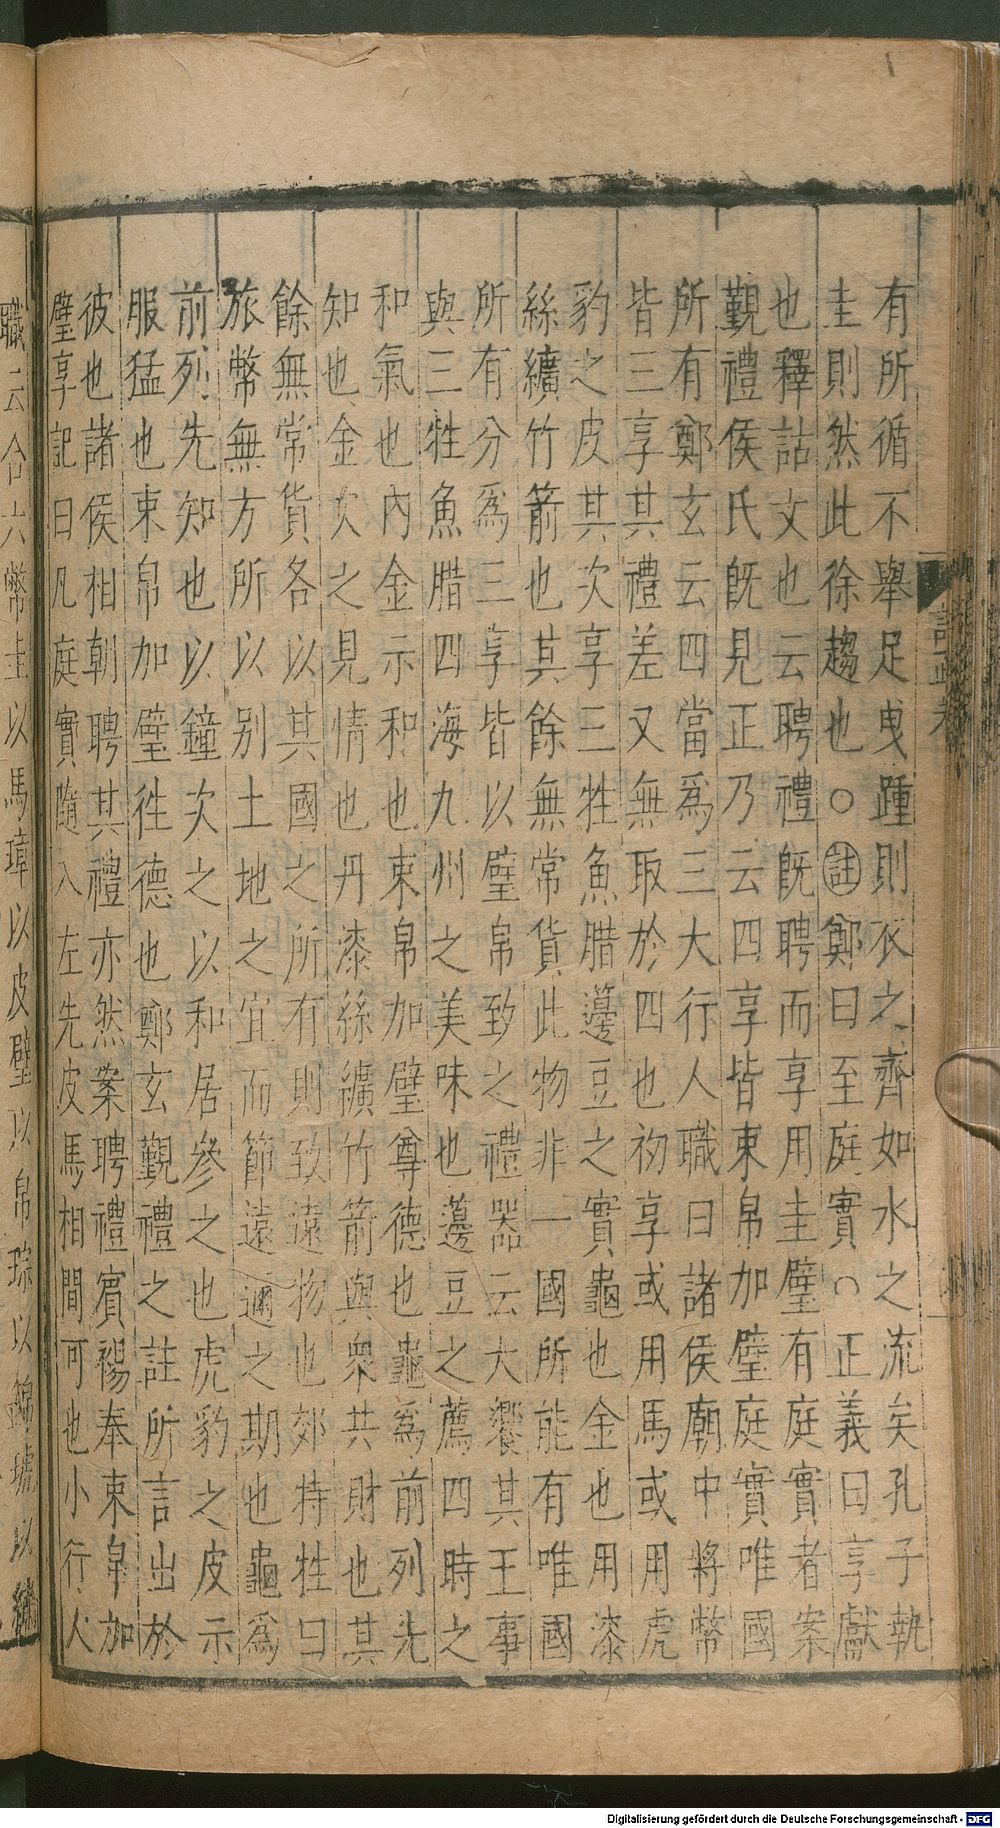 有所循不舉足曳踵則衣之齊如水之流矣孔子執
圭則然此徐趨也○註鄭曰至庭實○正義曰享獻
也釋詁文也云聘禮旣聘而享用圭璧有庭實者案
覲禮侯氏旣見正乃云四享皆束帛加璧庭實唯國
所有鄭玄云四當爲三大行人職曰諸侯廟中將幣
皆三享其禮差又無取於四也初享或用馬或用虎
豹之皮其次享三牲魚腊籩豆之實龜也金也用漆
絲纊竹箭也其餘無常貨此物非一國所能有唯國
所有分爲三享皆以璧帛致之禮器云大饗其王事
與三牲魚腊四海九州之美味也籩豆之薦四時之
和氣也內金示和也束帛加璧尊德也龜爲前列先
知也金次之見情也丹漆絲纊竹箭與衆共財也其
餘無常貨各以其國之所有則致遠物也郊特牲曰
旅幣無方所以别土地之宜而節遠邇之期也龜爲
前列先知也以鐘次之以和居參之也虎豹之皮示
服猛也束帛加璧徃德也鄭玄覲禮之註所言出於
彼也諸侯相朝聘其禮亦然案聘禮賓裼奉束帛加
璧享記曰凡庭實隨入左先皮馬相間可也小行人
職云合六幣圭以馬璋以皮璧以帛琮以錦琥以繡
Digitalisierung gefördert durch die Deutsche Forschungsgemeinschaft - DFG